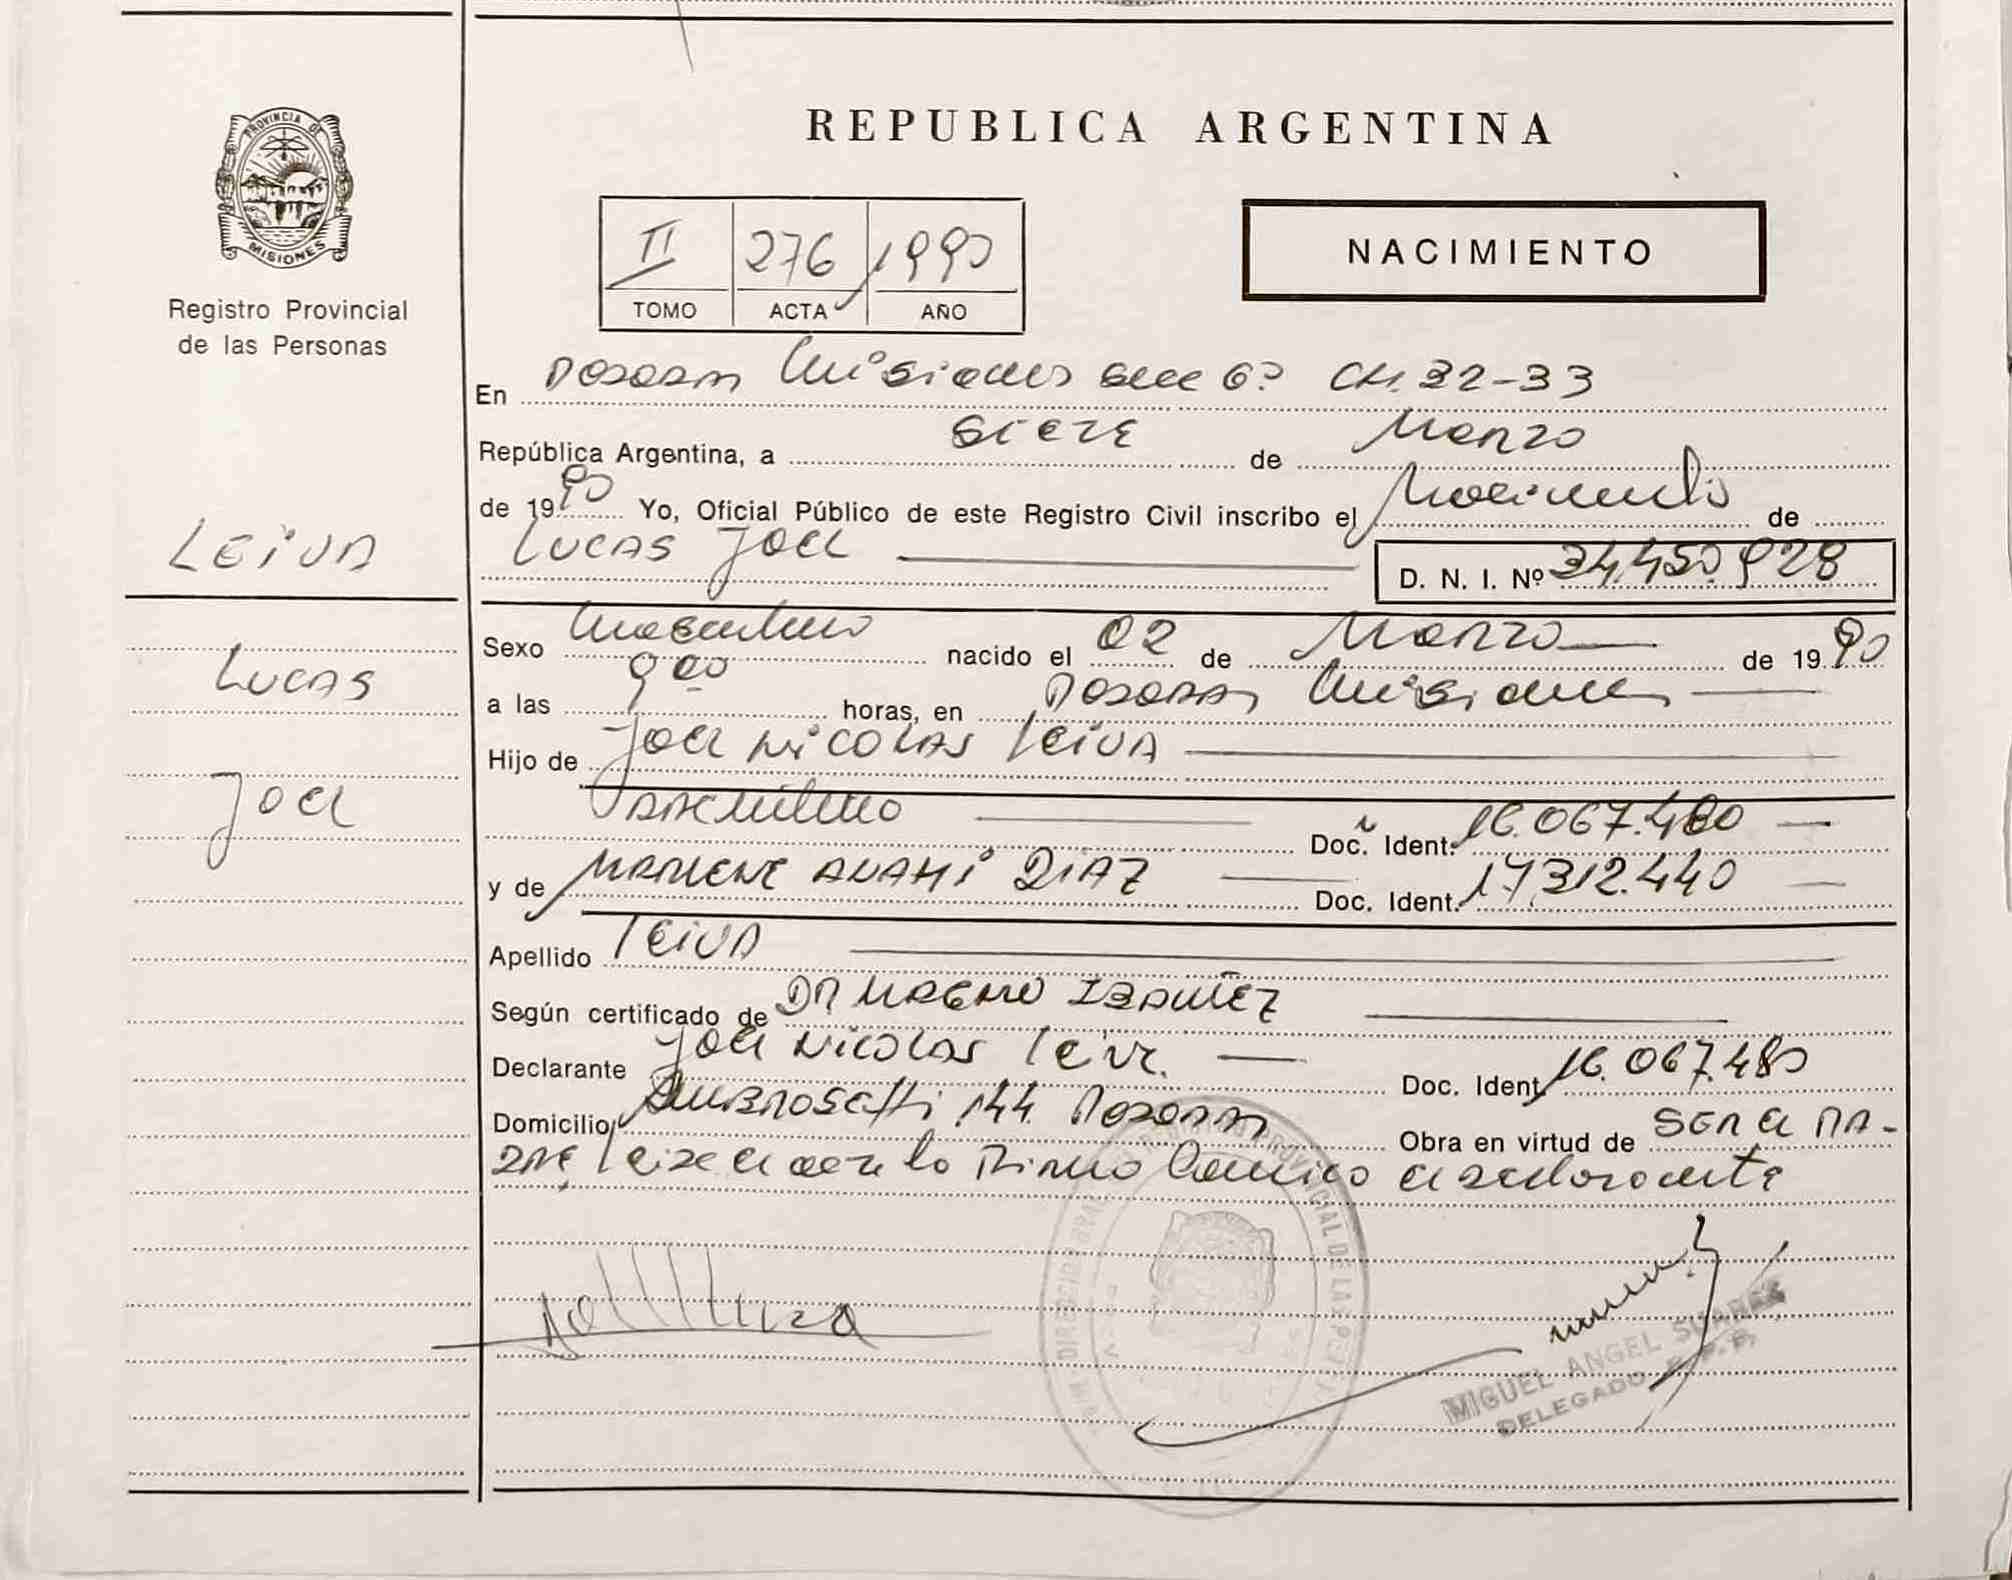 PROVINCIA DE
MISIONES
Registro Provincial
de las Personas
LEIVA
Lucas
Joel
REPUBLICA ARGENTINA
II 276 1990
TOMO ACTA AÑO
NACIMIENTO
En Posadas Misiones Secc 6ª Ch. 32-33
República Argentina, a Siete de Marzo
de 1990 Yo, Oficial Público de este Registro Civil inscribo el Nacimiento de
Lucas Joel D. N. I. Nº 34.450.928
Sexo Masculino nacido el 02 de Marzo de 1990
a las 9 00 horas, en Posadas Misiones
Hijo de Joel Nicolas Leiva
Doc. Ident. 16.067.480
y de Marlene Anahi Diaz Doc. Ident. 17.312.440
Apellido Leiva
Según certificado de Dr Moreno Ibañez
Declarante Joel Nicolas Leiva Doc. Ident 16.067.480
Domicilio Ambrosetti 144 Posadas Obra en virtud de ser el Pa-
dre, Leida el acta la firmo conmigo el declarante
MIGUEL ANGEL SUAREZ
DELEGADO R. P. P.